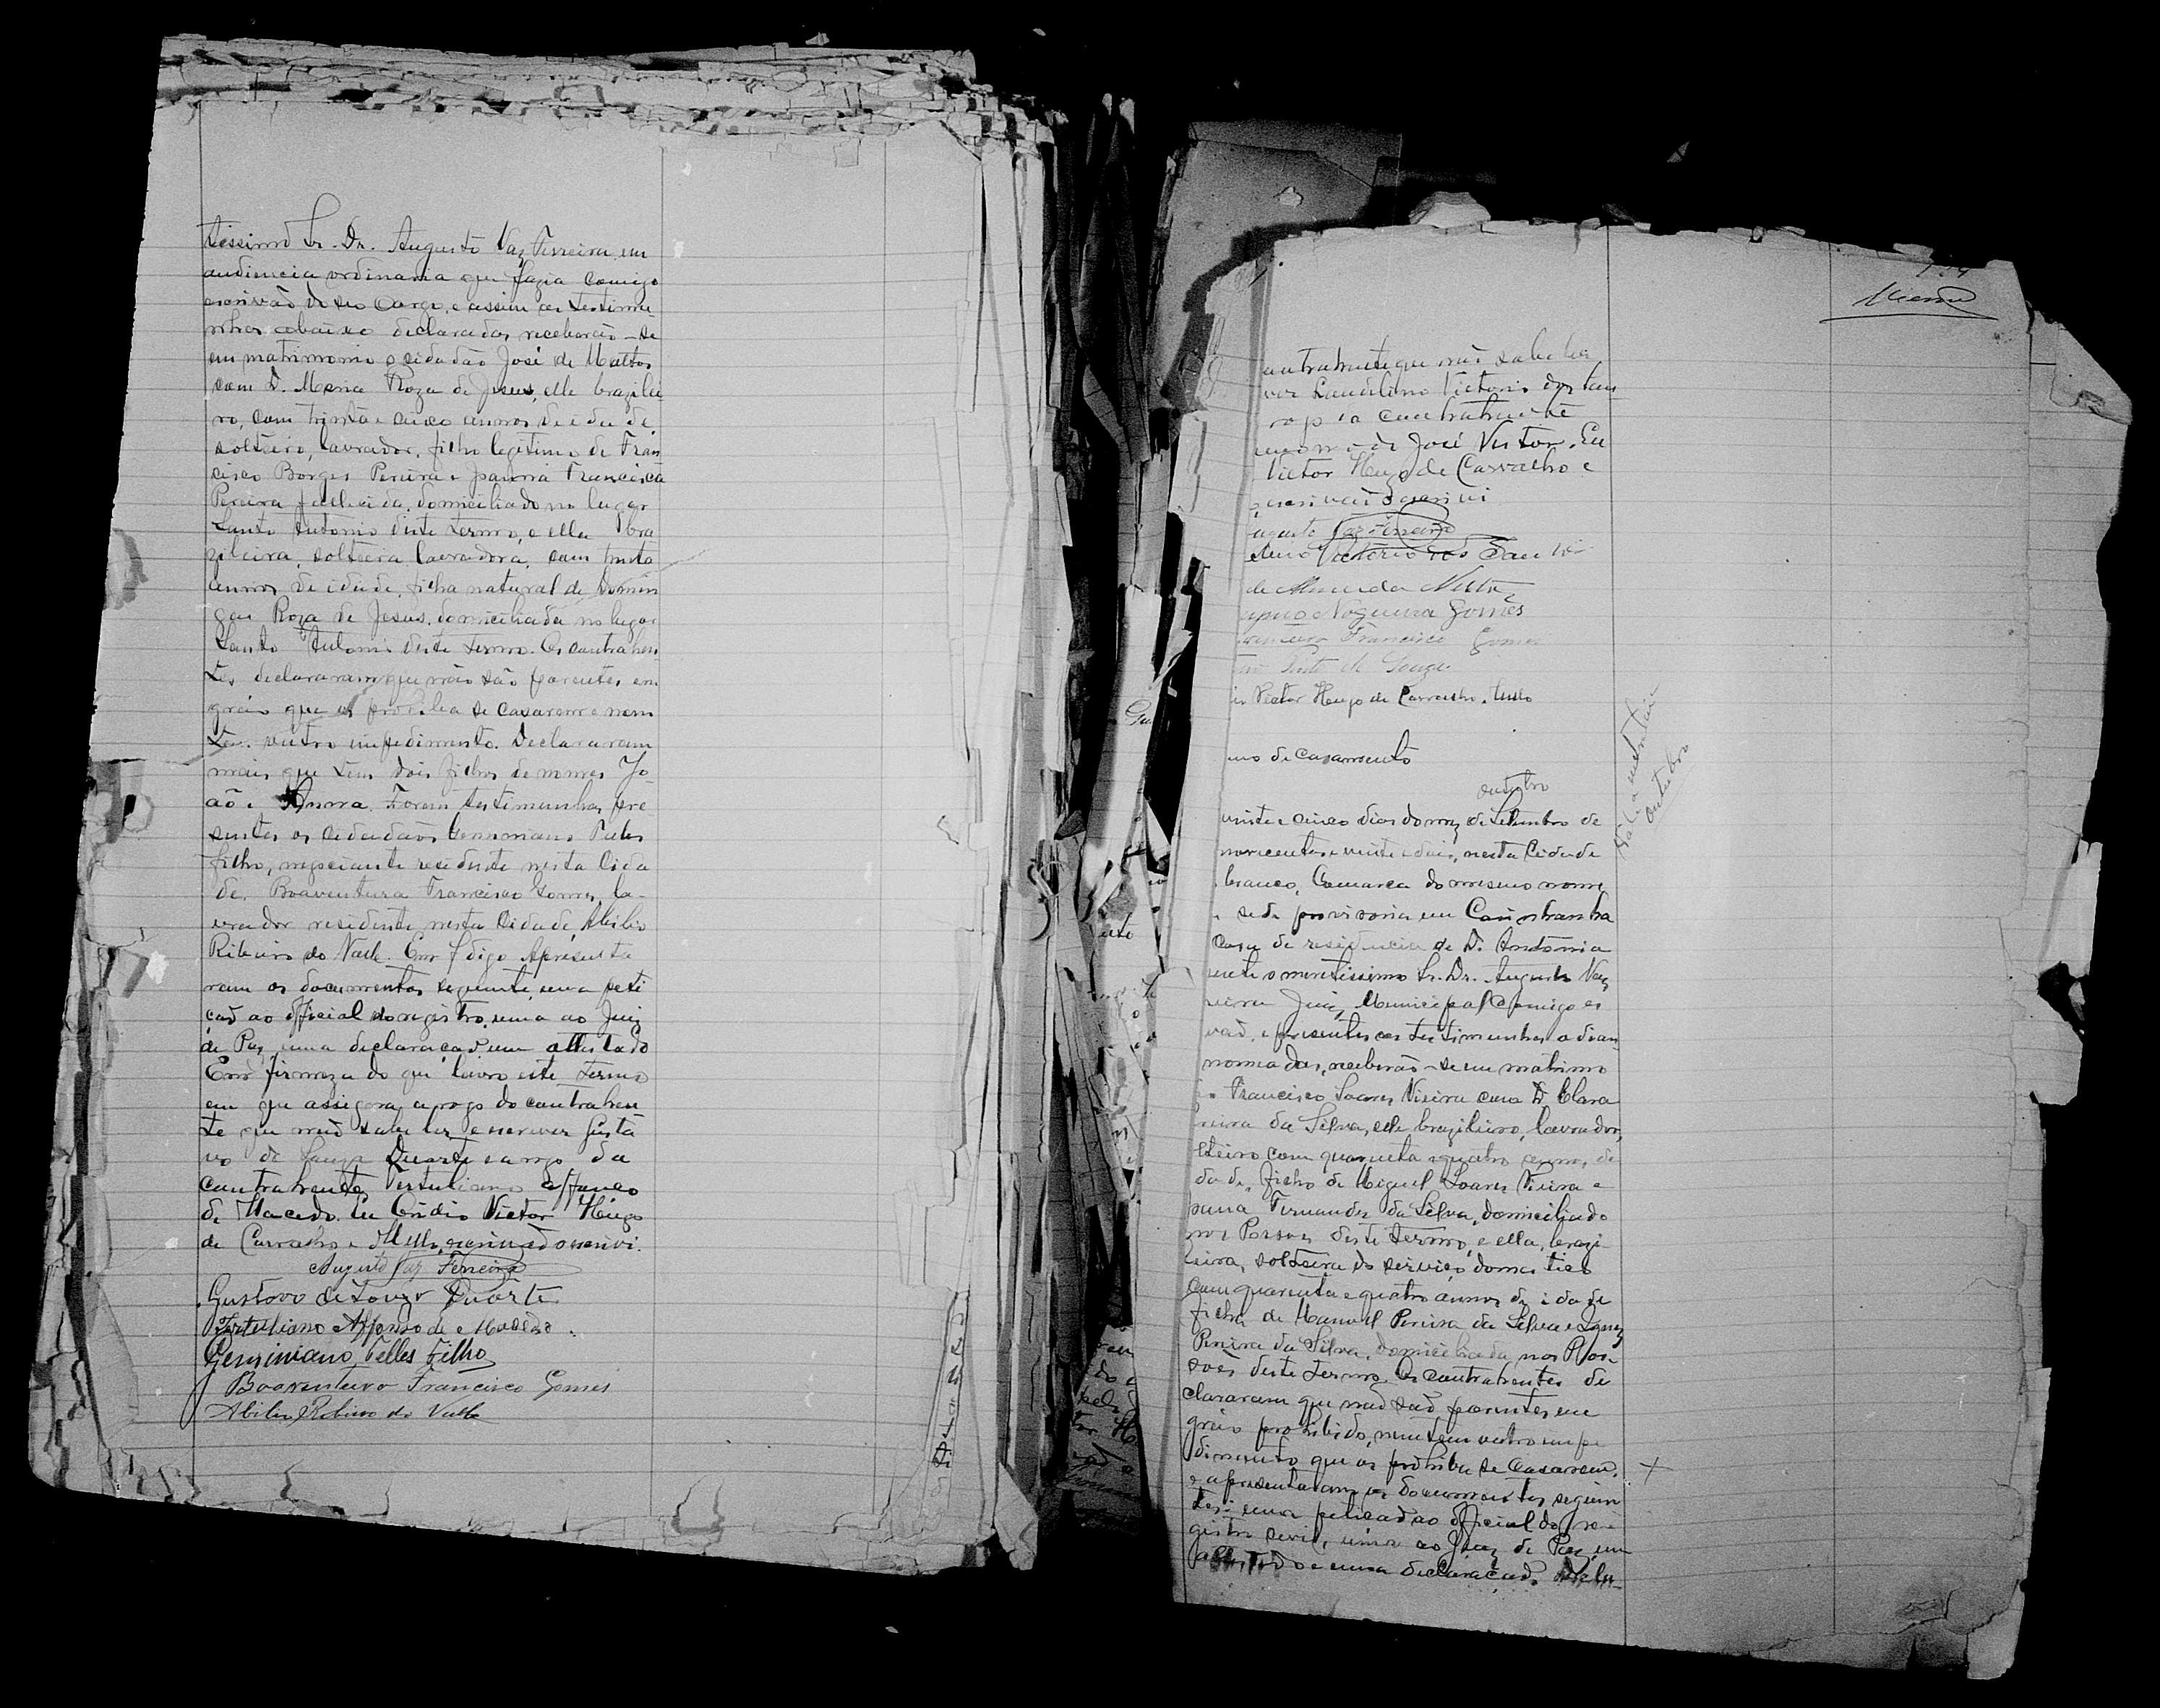 tissimo Sr. Dr. Augusto Vaz Ferreira em
audiencia ordinaria que fazia comigo
escrivão de seu cargo, e assim as testimu
nhas abaixo declaradas receberão-se
em matrimonio o cidadão José de Mattos
com D. Maria Roza de Jesus, elle brazilei
ro, com trinta e cinco annos de idade,
solteiro, lavrador, filho legitimo de Fran
cisco Borges Pereira e Joanna Francisca
Pereira fallecida, domiciliado no lugar
Santo Antonio deste termo, e ella bra
zileira, solteira lavradora, com trinta
annos de idade, filha natural de Domin
gas Roza de Jesus, domiciliada no lugar
Santo Antonio deste termo. Os contrahen
tes declararam que não são parentes em
gráo que os prohiba se casarem e nem
tem outro impedimento. Declararam
mais que tem dois filhos de nomes Jo
ão e Anna. Foram testimunhas pre
sentes os cidadãos Germiniano Telles
filho, negociante residente nesta Cida
de, Boaventura Francisco Gomes, la
vrador residente nesta Cidade, Abilio
Ribeiro do Valle. Em f digo Apresenta
ram os documentos seguinte, uma peti
ção ao official do registro, uma ao Juiz
de Paz, uma declaração e um attestado
Em firmeza do que lavro este termo
em que assigna a rogo do contrahen
te que não sabe ler e escrever Gusta
vo de Souza Duarte e a rogo da
contrahente Tertuliano Affonso
de Macedo. Eu Victor Hugo
de Carvalho e Mello, escrivão o escrivi.
Augusto Vaz Ferreira
Gustavo de Souza Duarte
Tertuliano Affonso de Macedo
Germiniano Telles Filho
Boaventura Francisco Gomes
Abilio Ribeiro do Valle
contrahente que não sabe ler
ver Laudelino Victorio dos San
rogo da contrahente
de José Victor. Eu
Victor Hugo de Carvalho e
escrivão o escrivi
Augusto Vaz Ferreira
Victorio dos Santos
de Almeida
Nogueira Gomes
Francisco Gomes
Pinto de Souza
Victor Hugo de Carvalho e Mello
mo de Casamento
outubro
vinte e cinco dias do mez de Setembro de
novecentos e vinte e dois, nesta Cidade
branco, Comarca do mesmo nome
sede provisoria em Carinhanha
casa de residencia de D. Antônia
o meretissimo Sr. Dr. Augusto Vaz
reira Juiz Municipal comigo es
vão, e presentes as testimunhas adian
nomeadas, receberão-se em matrimo
Francisco Soares Vieira com D. Clara
reira da Silva, elle brazileiro, lavrador,
lteiro com quarenta e quatro annos de
dade, filho de Miguel Soares Vieira e
Fernandes da Silva, domiciliado
nos deste termo, e ella, brazi
leira, solteira do serviço domestico
com quarenta e quatro annos de idade
filha de Manoel Pereira da Silva e Ignez
Pereira da Silva, domiciliada nos
deste termo. Os contrahentes de
clararam que não são parentes em
gráo prohibido, nem tem outro impe
dimento que os prohiba se Casarem,
e apresentaram os documentos seguin
tes: uma petição ao official do re
gistro civil, uma ao Juiz de Paz, um
attestado e uma declaração.
outubro